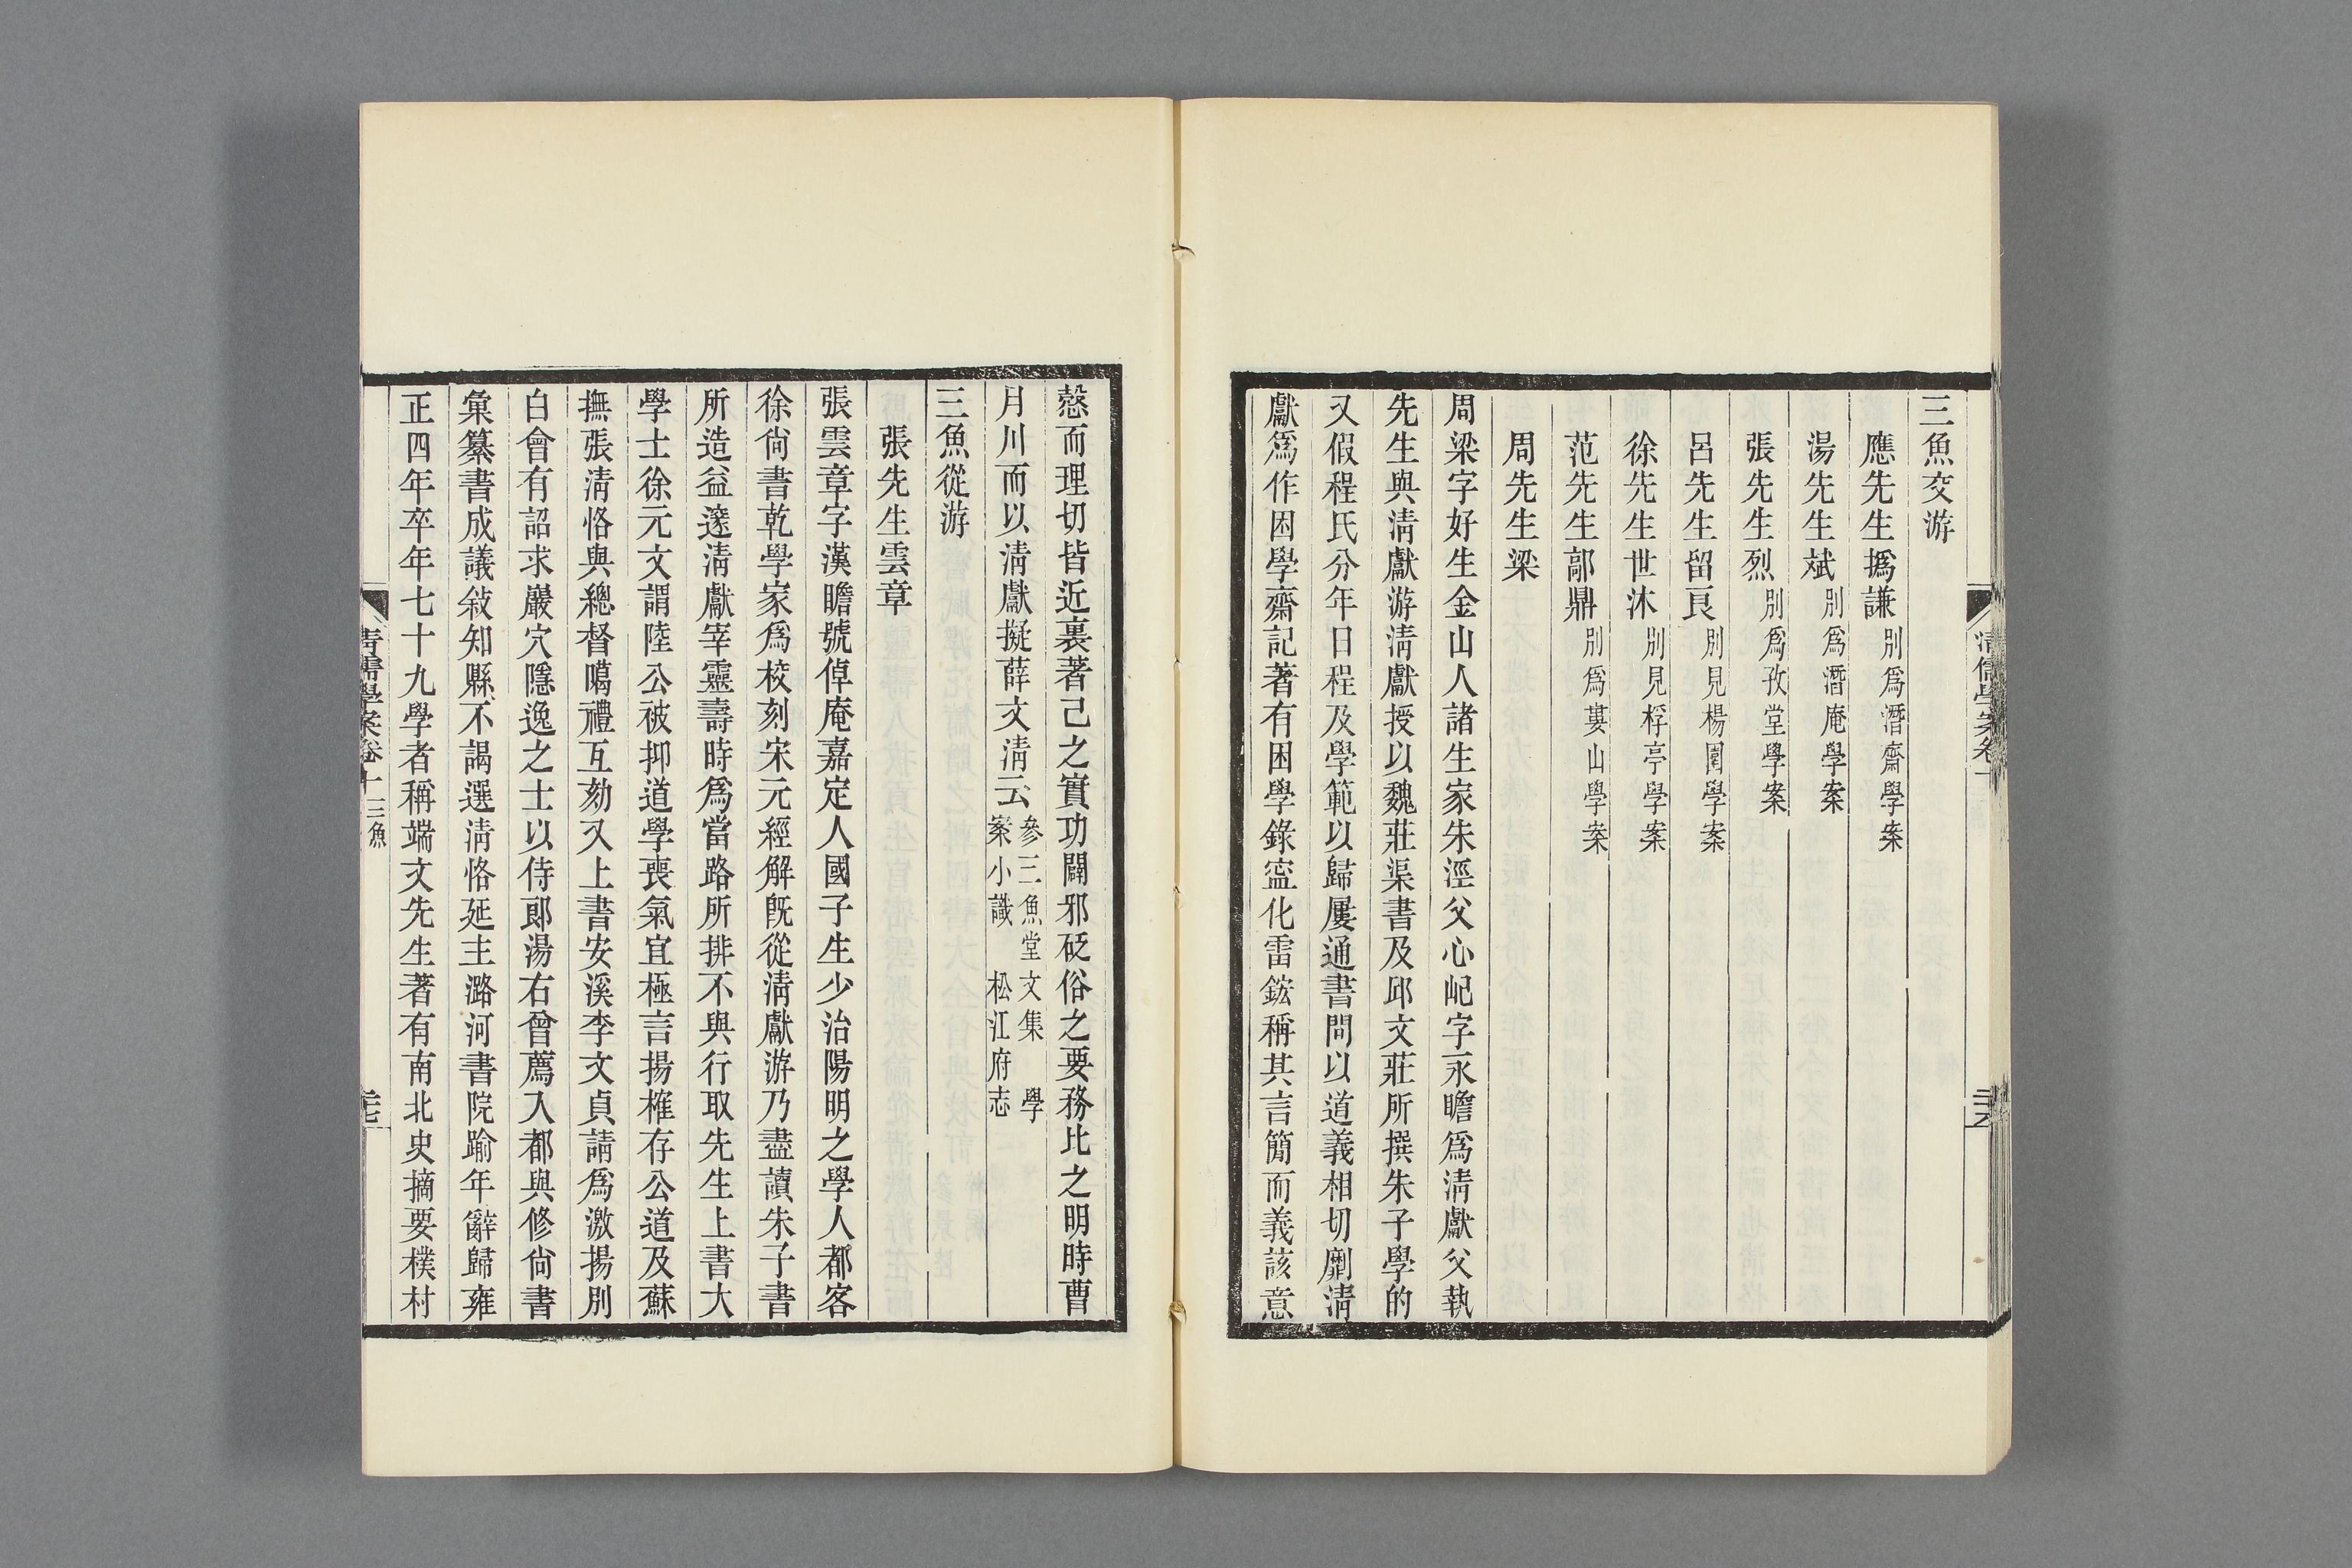 三魚交游
應先生撝謙 別爲潛齋學案
湯先生斌 別爲潛庵學案
張先生烈 別爲孜堂學案
呂先生留良 別見楊園學案
徐先生世沐 別見桴亭學案
范先生鄗鼎 別爲婁山學案
周先生梁
周梁字好生金山人諸生家朱涇父心屺字永瞻爲淸獻父執
先生與淸獻游淸獻授以魏莊渠書及邱文莊所撰朱子學的
又假程氏分年日程及學範以歸屢通書問以道義相切劘淸
獻爲作困學齋記著有困學錄寍化雷鋐稱其言簡而義該意
慤而理切皆近裏著己之實功闢邪砭俗之要務比之明時曹
月川而以淸獻擬薛文淸云 參三魚堂文集 學
案小識 松江府志
三魚從游
張先生雲章
張雲章字漢瞻號倬庵嘉定人國子生少治陽明之學入都客
徐尙書乾學家爲校刻宋元經解旣從淸獻游乃盡讀朱子書
所造益邃淸獻宰靈壽時爲當路所排不與行取先生上書大
學士徐元文謂陸公被抑道學喪氣宜極言揚搉存公道及蘇
撫張淸恪與總督噶禮互劾又上書安溪李文貞請爲激揚別
白會有詔求巖穴隱逸之士以侍郞湯右曾薦入都與修尙書
彙纂書成議敍知縣不謁選淸恪延主潞河書院踰年辭歸雍
正四年卒年七十九學者稱端文先生著有南北史摘要樸村
淸儒學案卷十
三魚